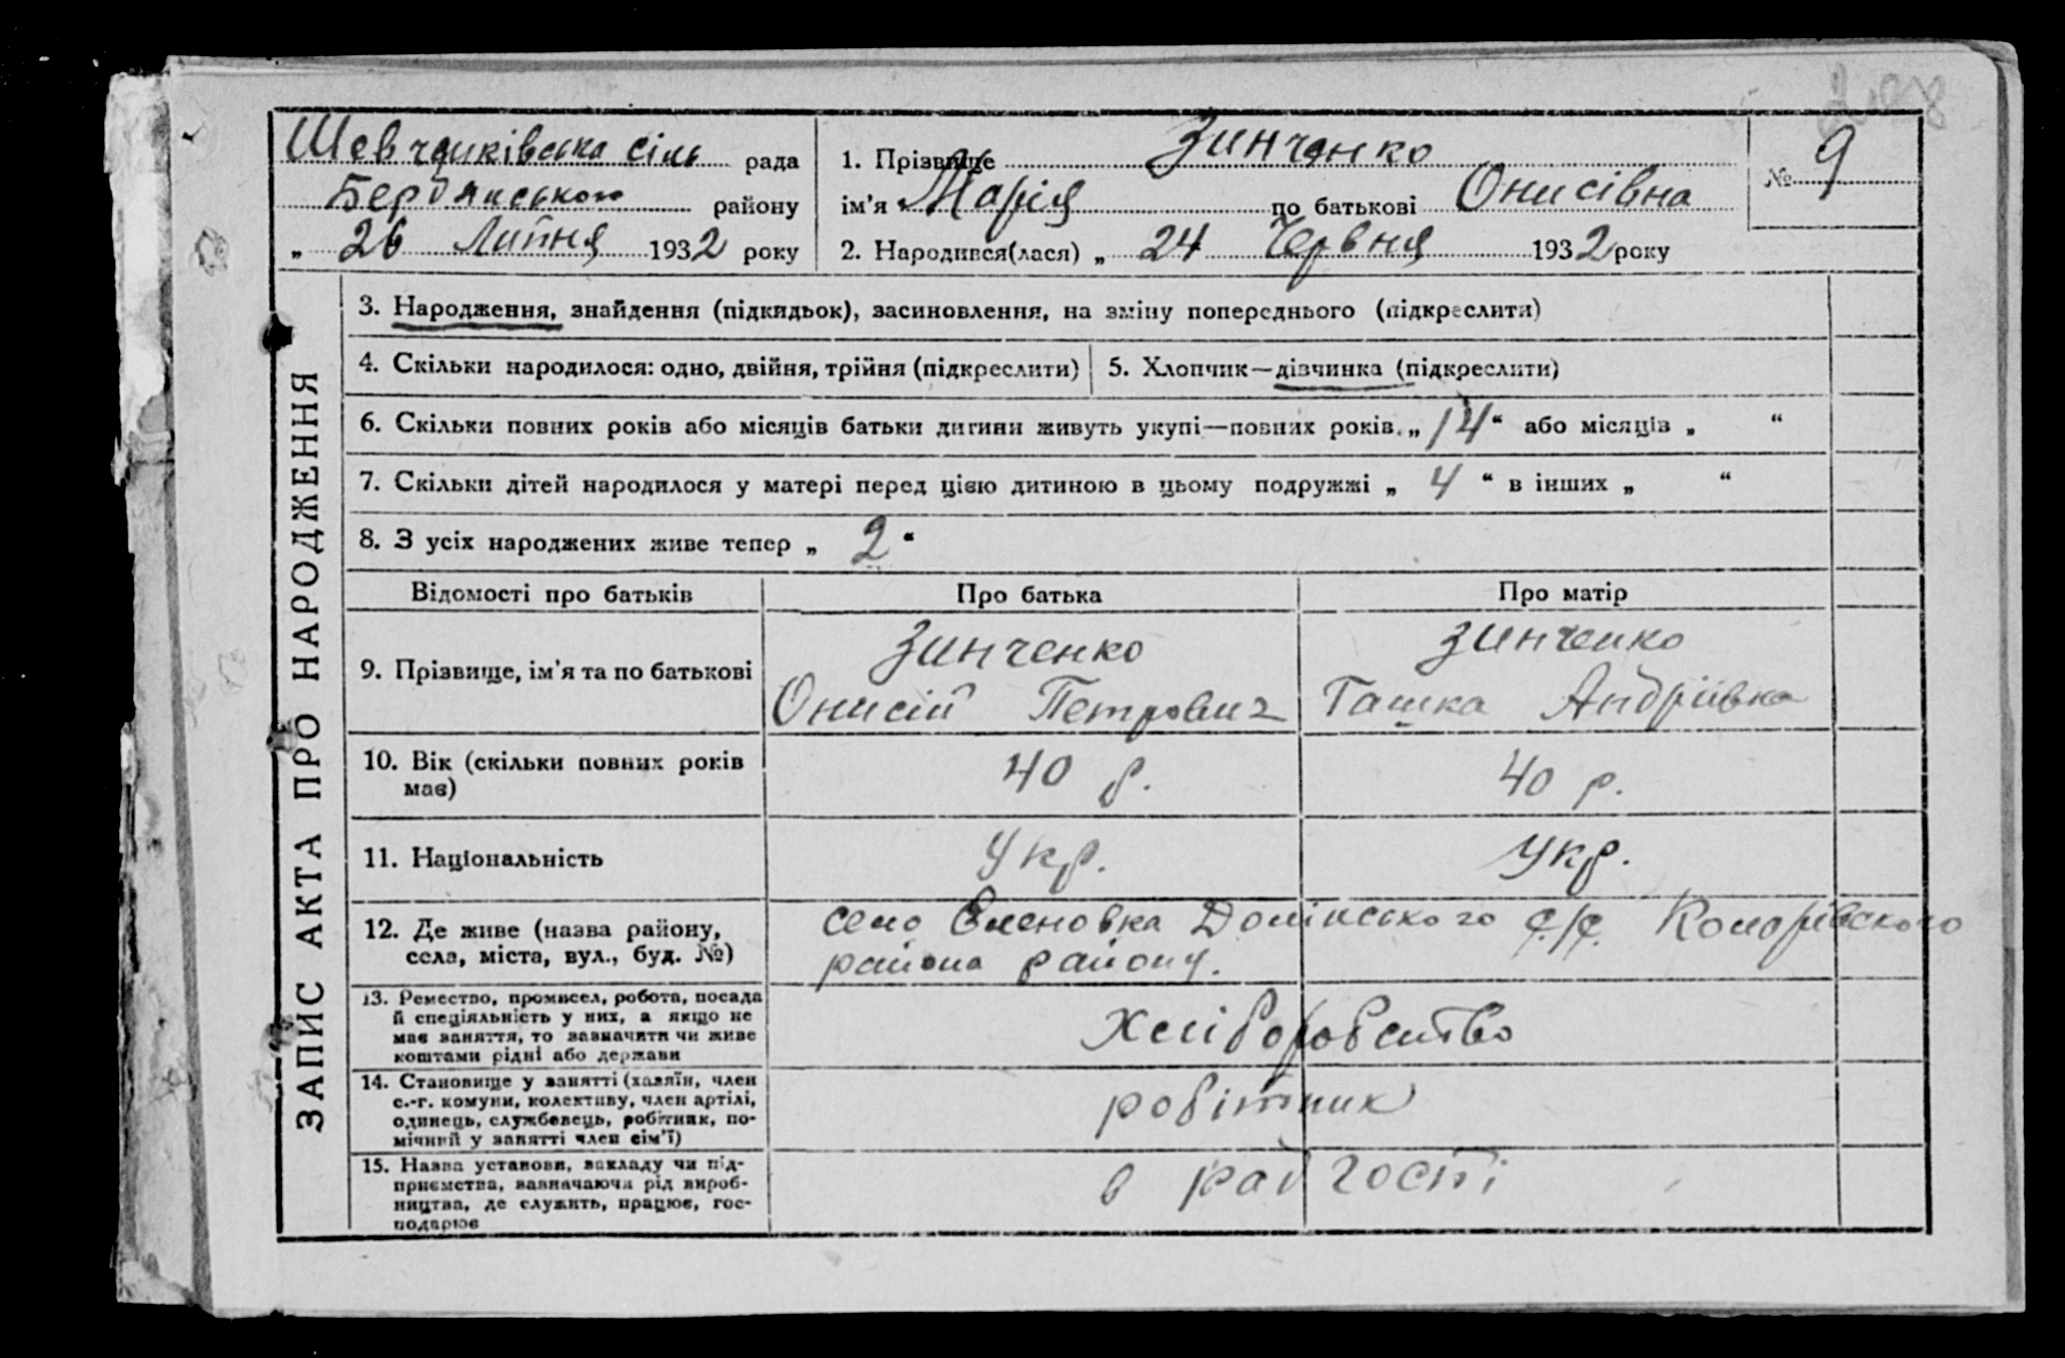 Шевченківська сіль рада
Бердянського району
„ 26 Липня 1932 року
1. Прізвище Зинченко
ім'я Марія по батькові Онисівна
2. Народився(лася) „ 24 Червня 1932 року
№ 9
ЗАПИС АКТА ПРО НАРОДЖЕННЯ
3. Народження, знайдення (підкидьок), засиновлення, на зміну попереднього (підкреслити)
4. Скільки народилося: одно, двійня, трійня (підкреслити)
5. Хлопчик—дівчинка (підкреслити)
6. Скільки повних років або місяців батьки дитини живуть укупі—повних років „ 14 “ або місяців „ “
7. Скільки дітей народилося у матері перед цією дитиною в цьому подружжі „ 4 “ в інших „ “
8. З усіх народжених живе тепер „ 2 “
Відомості про батьків
Про батька
Про матір
9. Прізвище, ім'я та по батькові
Зинченко
Онисій Петрович
Зинченко
Андріївна
10. Вік (скільки повних років
має)
40 р.
40 р.
11. Національність
Укр.
Укр.
12. Де живе (назва району,
села, міста, вул., буд. №)
село с/р.
района району.
13. Ремество, промисел, робота, посада
й спеціяльність у них, а якщо не
має заняття, то зазначити чи живе
коштами рідні або держави
Хліборобство
14. Становище у занятті (хазяїн, член
с.-г. комуни, колективу, член артілі,
одинець, службовець, робітник, по-
мічний у занятті член сім'ї)
робітник
15. Назва установи, закладу чи під-
приємства, зазначаючи рід вироб-
ництва, де служить, працює, гос-
подарює
в